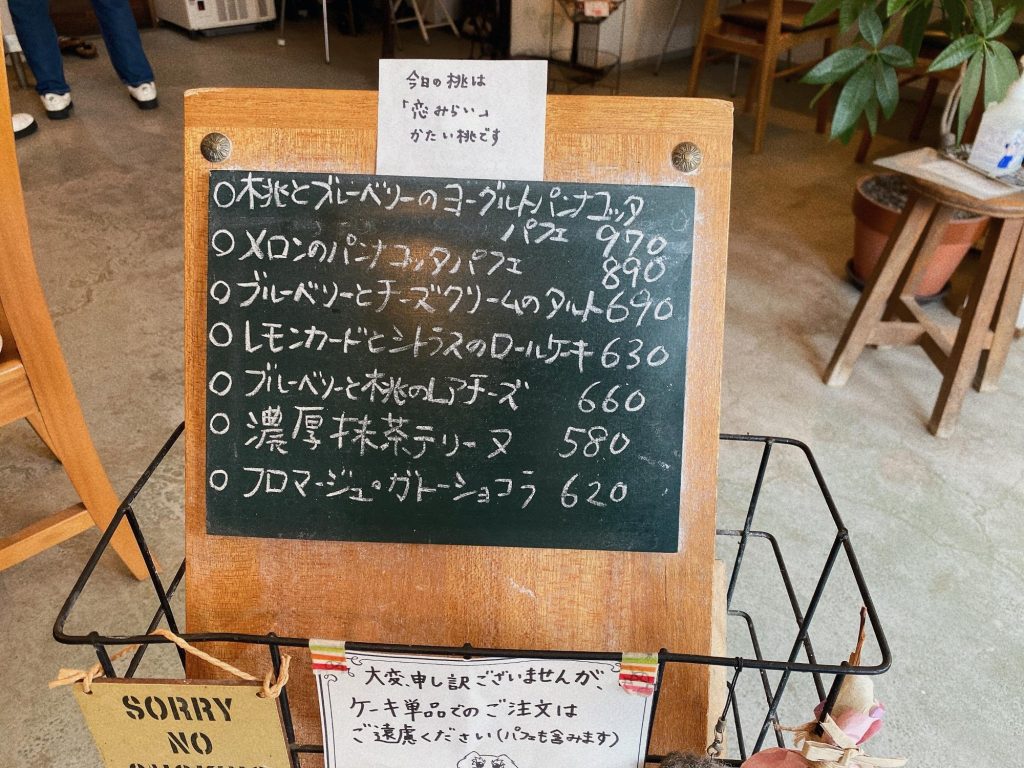 今日の桃は
「恋みらい」
かたい桃です
○桃とブルーベリーのヨーグルトパンナコッタ
パフェ 970
○メロンのパンナコッタパフェ 890
○ブルーベリーとチーズクリームのタルト690
○レモンカードとシトラスのロールケーキ630
○ブルーベリーと桃のレアチーズ 660
○濃厚抹茶テリーヌ 580
○フロマージュ・ガトーショコラ 620
大変、申し訳ございませんが、
ケーキ単品でのご注文は
ご遠慮ください(パフェも含みます)
SORRY
NO